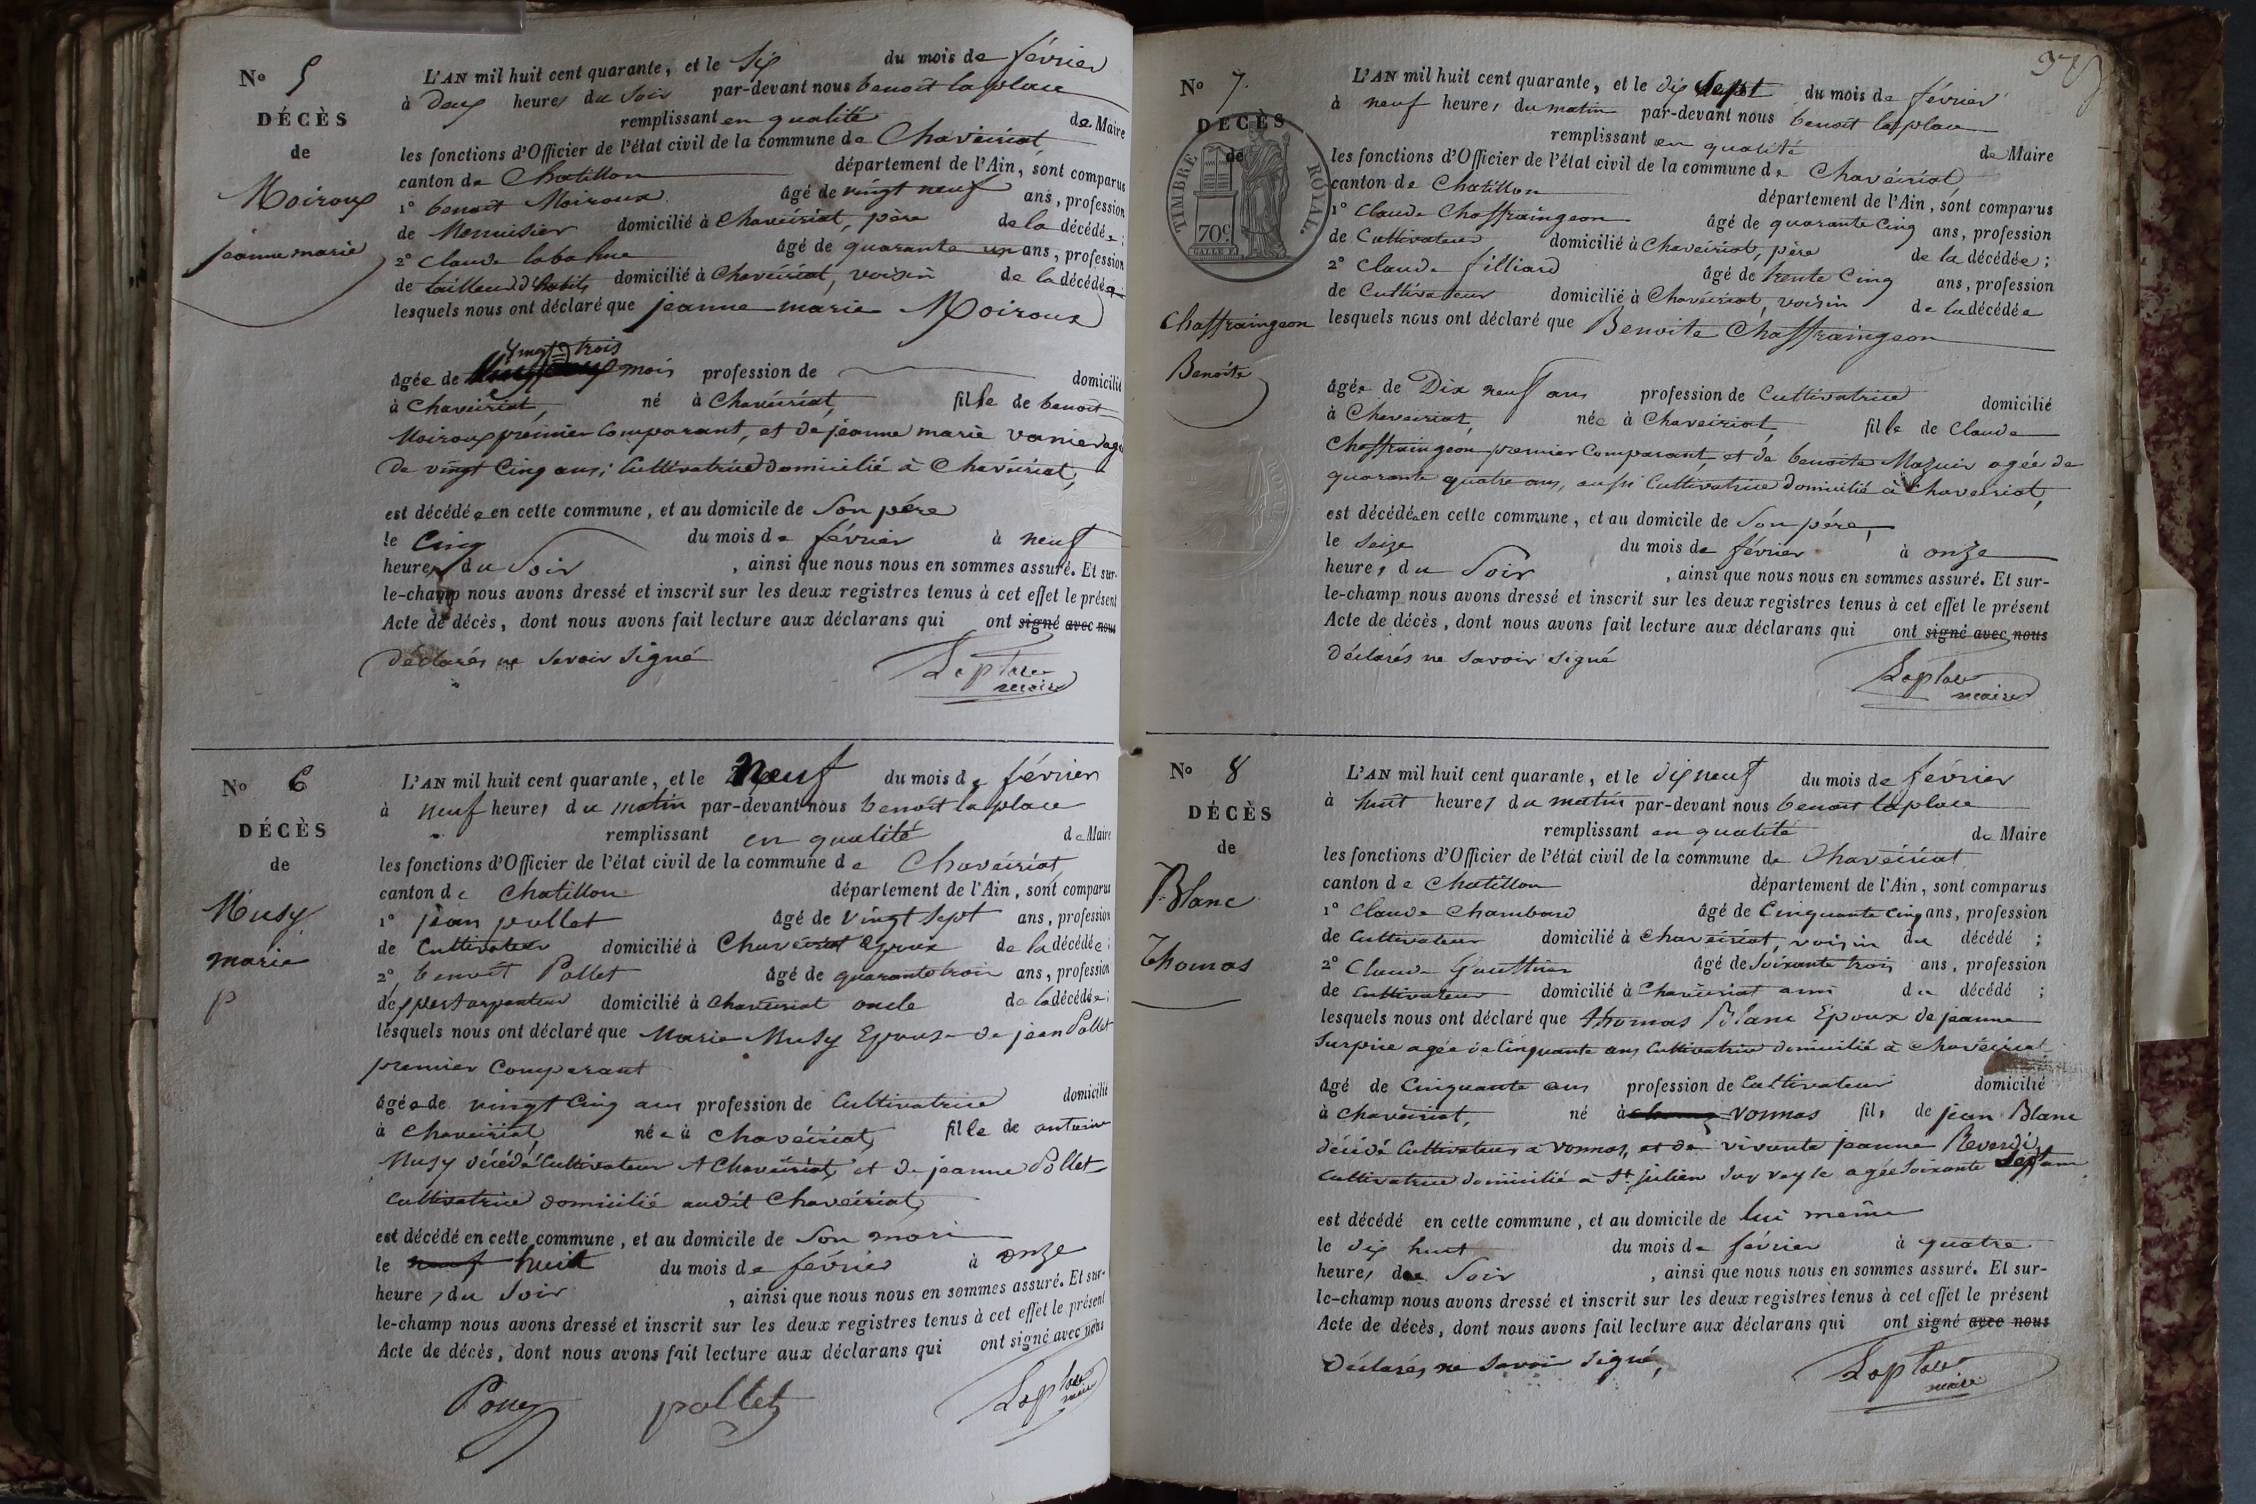 N° 5
DÉCÈS
de
Moiroux
jeanne marie
L'AN mil huit cent quarante, et le Six du mois de février
à Deux heures du Soir par-devant nous benoit laplace
remplissant en qualité de Maire
les fonctions d'Officier de l'état civil de la commune de Chaveiriat
canton de Chatillon département de l'Ain, sont comparus
1° benoit Moiroux âgé de vingt neuf ans, profession
de Menuisier domicilié à Chaveiriat, père de la décédée;
2° Claude âgé de quarante un ans, profession
de tailleur d'habits domicilié à Chaveiriat, voisin de la décédée
lesquels nous ont déclaré que jeanne marie Moiroux
vingt trois
âgée de mois profession de domicilié
à Chaveiriat, né à Chaveiriat, fille de benoit
Moiroux premier Comparant, et de jeanne marie agée
de vingt Cinq ans; Cultivatrice domicilié à Chaveiriat,
est décédée en cette commune, et au domicile de Son père
le Cinq du mois de février à neuf
heures du Soir, ainsi que nous nous en sommes assuré. Et sur-
le-champ nous avons dressé et inscrit sur les deux registres tenus à cet effet le présent
Acte de décès, dont nous avons fait lecture aux déclarans qui ont signé avec nous
déclarés ne Savoir Signé
Laplace
maire
N° 6
DÉCÈS
de
Musy
marie
p
L'AN mil huit cent quarante, et le Neuf du mois de février
à neuf heures du matin par-devant nous benoit laplace
remplissant en qualité de Maire
les fonctions d'Officier de l'état civil de la commune de Chaveiriat
canton de Chatillon département de l'Ain, sont comparus
1° jean pollet âgé de vingt Sept ans, profession
de Cultivateur domicilié à Chaveiriat Epoux de la décédée;
2° benoit Pollet âgé de quarante trois ans, profession
arpenteur domicilié à Chaveiriat oncle de la décédée;
lesquels nous ont déclaré que Marie Musy Epouse de jean Pollet
premier Comparant
âgée de vingt Cinq ans profession de Cultivatrice domicilié
à Chaveiriat née à Chaveiriat, fille de antoine
Musy décédé Cultivateur A Chaveiriat, et de jeanne Pollet
Cultivatrice domicilié audit Chaveiriat,
est décédé en cette commune, et au domicile de Son mari
le neuf huit du mois de février à onze
heures du Soir, ainsi que nous nous en sommes assuré. Et sur-
le-champ nous avons dressé et inscrit sur les deux registres tenus à cet effet le présent
Acte de décès, dont nous avons fait lecture aux déclarans qui ont signé avec nous
pollet
Laplace
maire
N° 7.
DÉCÈS
de
TIMBRE ROYAL.
70c.
Chaffraingeon
Benoite
L'AN mil huit cent quarante, et le dix Sept du mois de février
à neuf heures du matin par-devant nous benoit laplace
remplissant en qualité de Maire
les fonctions d'Officier de l'état civil de la commune de Chaveiriat,
canton de Chatillon département de l'Ain, sont comparus
1° Claude Chaffraingeon âgé de quarante Cinq ans, profession
de Cultivateur domicilié à Chaveiriat, père de la décédée;
2° Claude filliard âgé de trente Cinq ans, profession
de Cultivateur domicilié à Chaveiriat, voisin de la décédée
lesquels nous ont déclaré que Benoite Chaffraingeon
âgée de Dix neuf ans profession de Cultivatrice domicilié
à Chaveiriat, née à Chaveiriat, fille de Claude
Chaffraingeon premier Comparant, et de benoite Mazuir agée de
quarante quatre ans, aussi Cultivatrice domicilié à Chaveiriat,
est décédée en cette commune, et au domicile de Son père,
le Seize du mois de février à onze
heures du Soir, ainsi que nous nous en sommes assuré. Et sur-
le-champ nous avons dressé et inscrit sur les deux registres tenus à cet effet le présent
Acte de décès, dont nous avons fait lecture aux déclarans qui ont signé avec nous
Déclarés ne Savoir Signé
Laplace
maire
N° 8
DÉCÈS
de
Blanc
Thomas
L'AN mil huit cent quarante, et le dix neuf du mois de février
à huit heures du matin par-devant nous benoit laplace
remplissant en qualité de Maire
les fonctions d'Officier de l'état civil de la commune de Chaveiriat
canton de Chatillon département de l'Ain, sont comparus
1° Claude Chambard âgé de Cinquante Cinq ans, profession
de Cultivateur domicilié à Chaveiriat, voisin du décédé;
2° Claude Gauthier âgé de Soixante trois ans, profession
de Cultivateur domicilié à Chaveiriat ami du décédé;
lesquels nous ont déclaré que thomas Blanc Epoux de jeanne
Surprise agée de Cinquante ans Cultivatrice domicilié à Chaveiriat
âgé de Cinquante ans profession de Cultivateur domicilié
à Chaveiriat, né à Vonnas fils de jean Blanc
décédé Cultivateur a Vonnas, et de vivante jeanne Reverdi,
Cultivatrice domicilié a St. julien Sur veyle agée Soixante Sept ans
est décédé en cette commune, et au domicile de lui même
le dix huit du mois de février à quatre
heures du Soir, ainsi que nous nous en sommes assuré. Et sur-
le-champ nous avons dressé et inscrit sur les deux registres tenus à cet effet le présent
Acte de décès, dont nous avons fait lecture aux déclarans qui ont signé avec nous
Déclarés ne Savoir Signé,
Laplace
maire